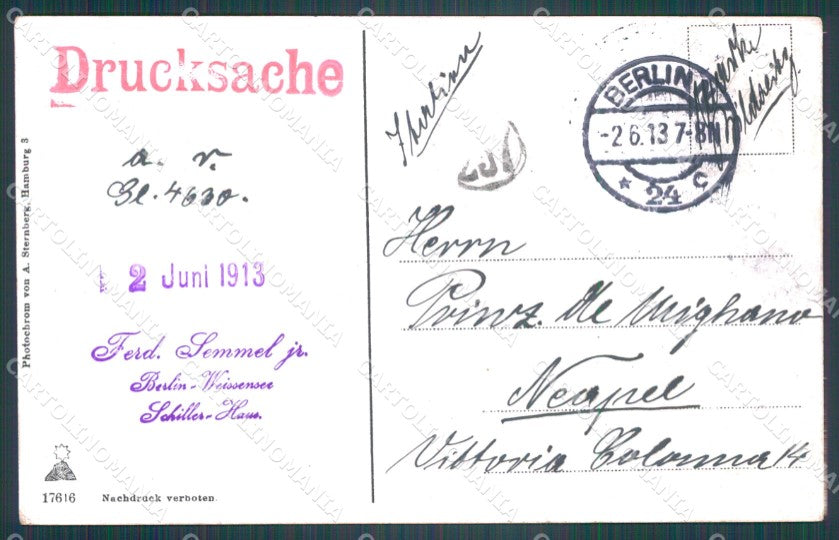 Drucksache
Italien
BERLIN
-2.6.13 7-8N
* 24 c
a. v.
Gl. 4630.
2 Juni 1913
Ferd. Semmel jr.
Berlin-Weissensee
Schiller-Haus.
Herrn
Prinz. de Mighano
Neapel
Vittoria Colonna 14
Photochrom von A. Sternberg, Hamburg 3
17616 Nachdruck verboten.
CARTOLINOMANIA